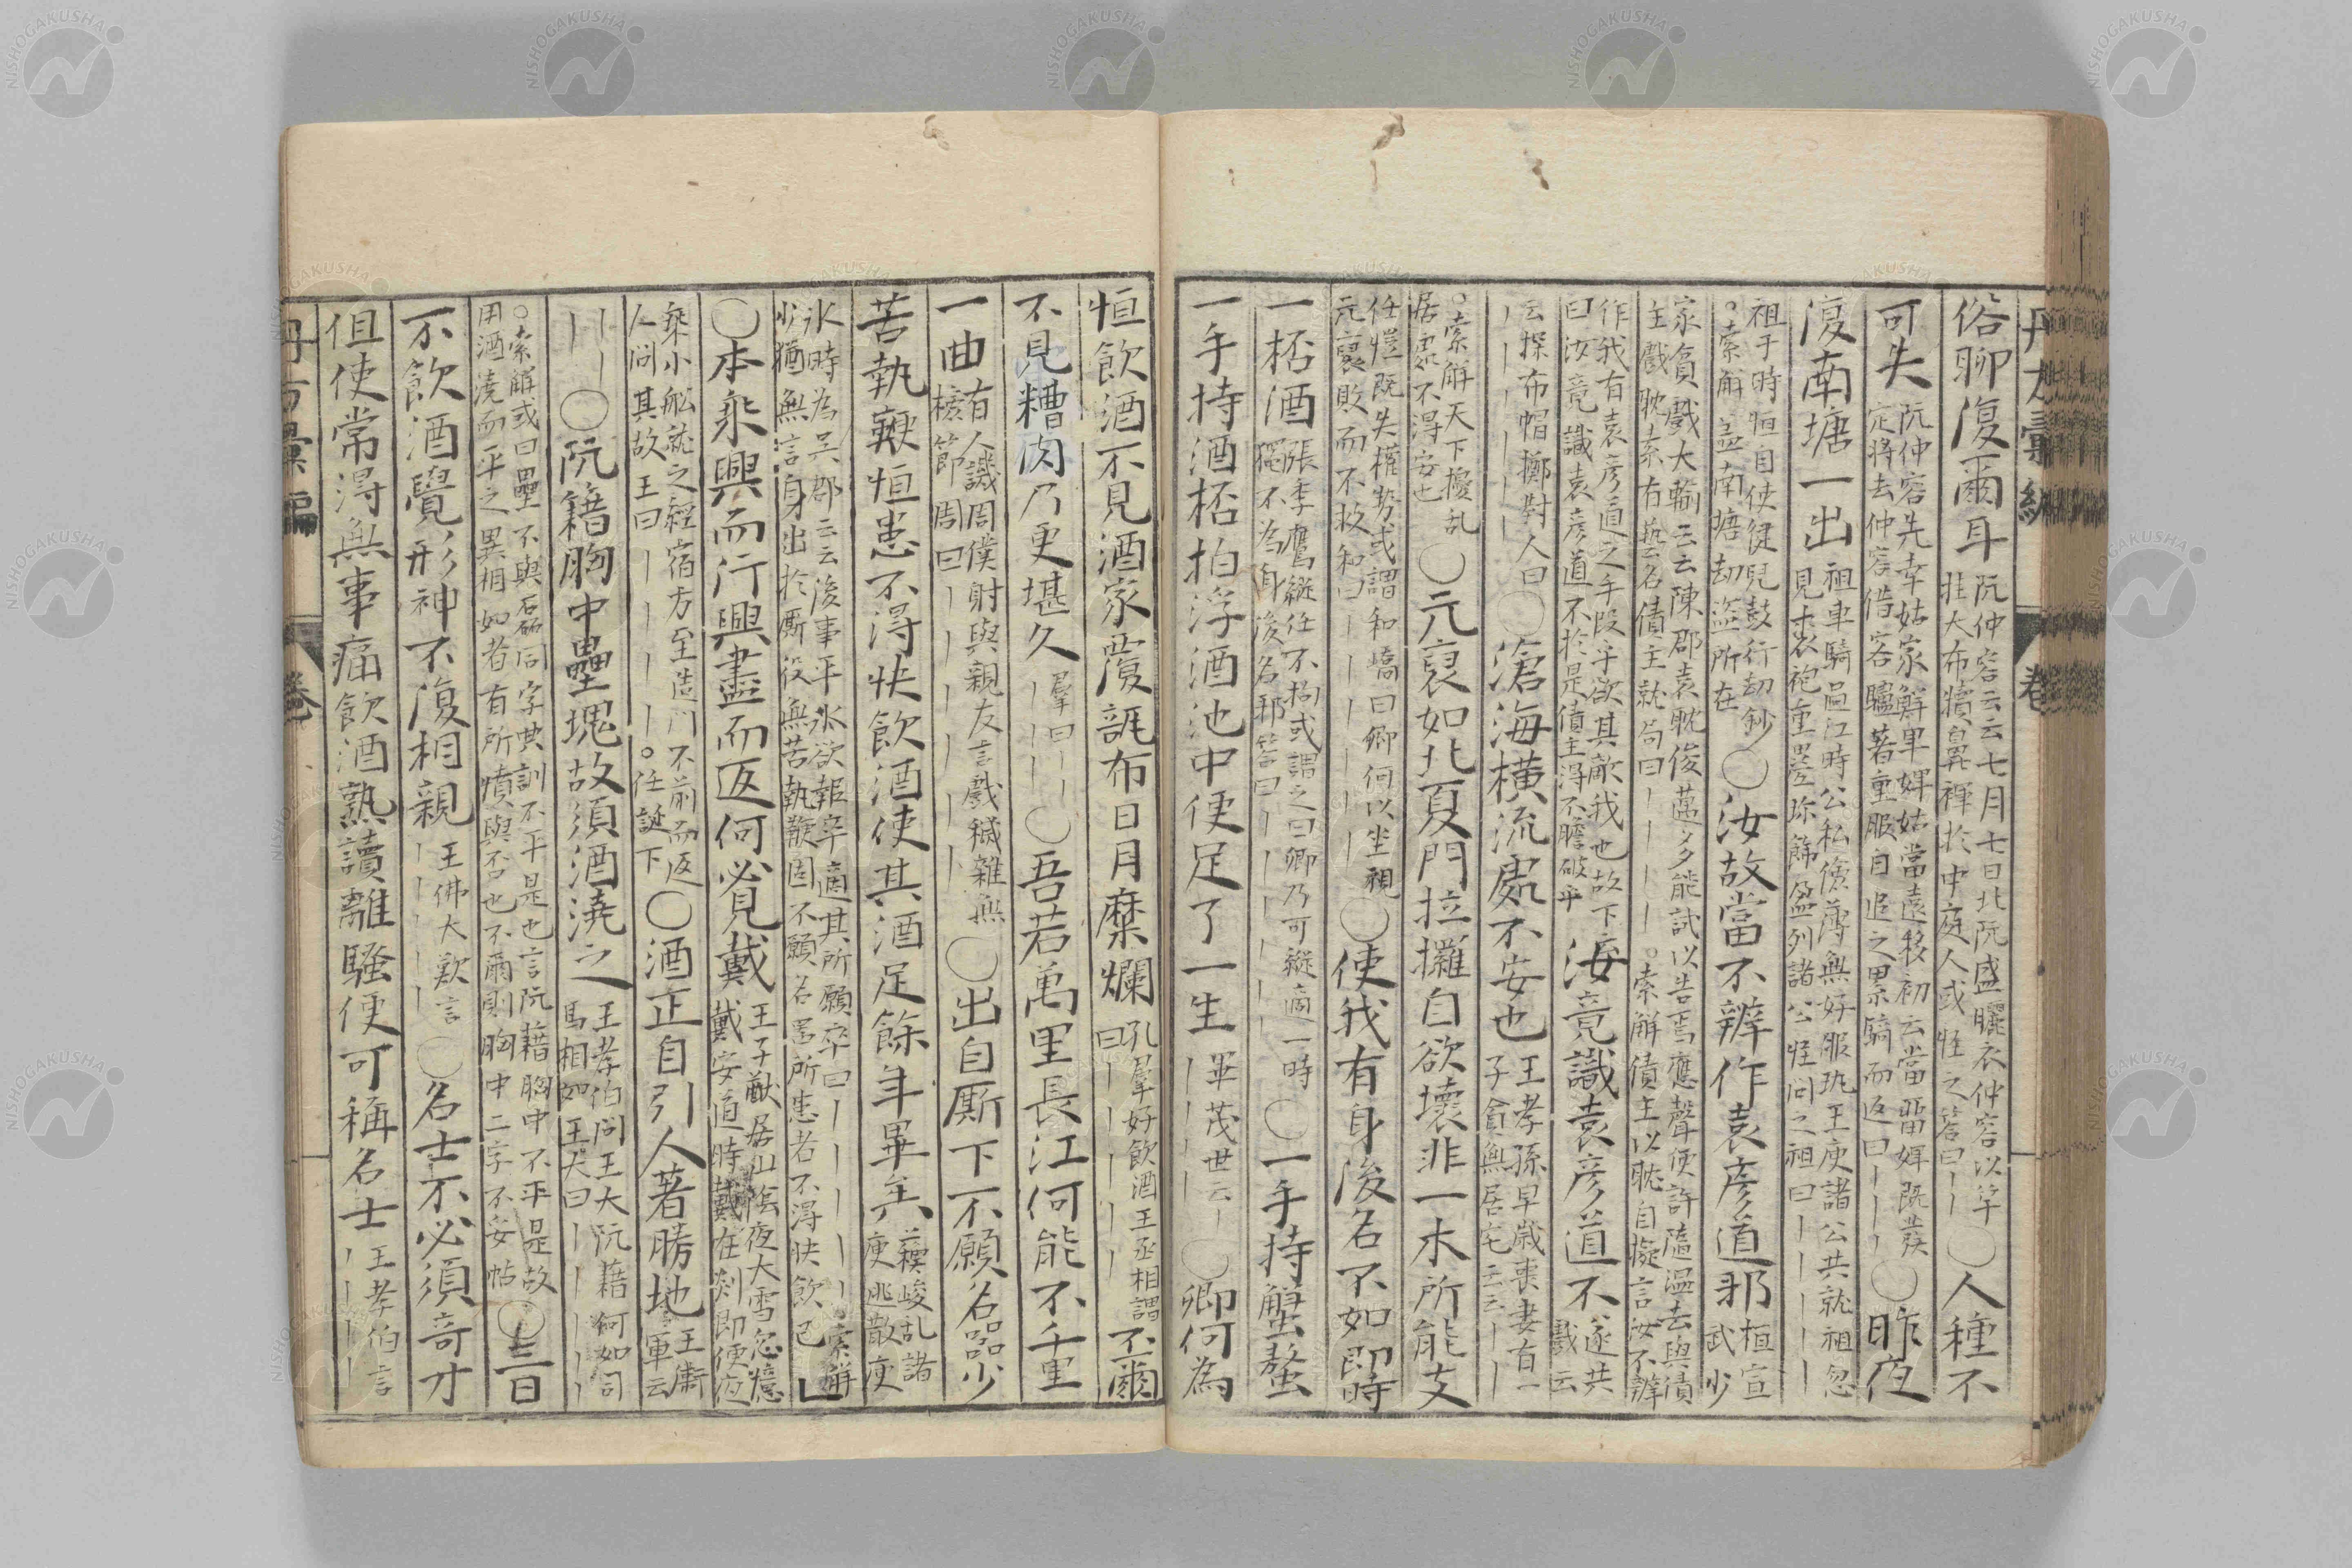 俗聊復爾耳 阮仲容云云七月七日北阮盛曬衣仲容以竿
挂大布犢鼻褌於中庭人或怪之答曰｜｜ 〇人種不
可失 阮仲容先幸姑家鮮卑婢姑當遠移初云當畱婢既發
定將去仲容借客驢著重服自追之累騎而返曰｜｜｜ 〇昨夜
復南塘一出 祖車騎過江時公私儉薄無好服玩王庾諸公共就祖忽
見裘袍重疊珍飾盈列諸公怪問之祖曰｜｜｜｜｜
祖于時恒自使健兒鼓行劫鈔
。索解盜南塘劫盜所在 〇汝故當不辨作袁彥道邪 桓宣
武少
家貧戲大輸云云陳郡袁耽俊邁多能試以告焉應聲便許隨溫去與債
主戲耽素有藝名債主就局曰｜｜｜｜｜。索解債主以耽自擬言汝不辨
作我有袁彥道之手段乎欲其敵我也故下
曰汝竟識袁彥道不於是債主得不膽破乎 汝竟識袁彥道不 遂共
戲云
云探布帽擲對人曰
｜｜｜｜｜｜ 〇滄海橫流處不安也 王孝孫早歲喪妻有一
子貧無居宅云云｜｜
。索解天下擾乱
居処不得安也 〇元裒如北夏門拉攞自欲壞非一木所能支
任愷既失權势或謂和嶠曰卿何以坐視
元裒敗而不救和曰｜｜｜｜｜ 〇使我有身後名不如即時
一桮酒 張季鷹縱任不拘或謂之曰卿乃可縱適一時
獨不為身後名邪答曰｜｜｜｜｜ 〇一手持蟹螯
一手持酒桮拍浮酒池中便足了一生 畢茂世云｜
｜｜｜｜ 〇卿何為
恒飲酒不見酒家覆瓿布日月糜爛 孔羣好飲酒王丞相謂
曰｜｜｜｜｜ 不爾
不見糟肉乃更堪久 羣曰｜｜
｜｜｜｜ 〇吾若萬里長江何能不千里
一曲 有人譏周僕射與親友言戲穢雜無
檢節周曰｜｜｜｜｜ 〇出自厮下不願名器少
苦執鞭恒患不得快飲酒使其酒足餘年畢矣 蘇峻乱諸
庾逃散庾
氷時為吳郡云云後事平氷欲報卒適其所願卒曰｜｜｜｜｜。索解
少猶無言身出於厮役無苦執鞭固不願名器所患者不得快飲已
〇本乘興而行興盡而返何必見戴 王子猷居山陰夜大雪忽憶
戴安道時戴在剡即便夜
乘小舩就之經宿方至造门不前而返
人问其故王曰｜｜｜｜｜。任誕下 〇酒正自引人著勝地 王衛
軍云
｜｜
｜ 〇阮籍胸中壘塊故須酒澆之 王孝伯问王大阮藉何如司
馬相如王大曰｜｜｜｜｜
。索解或曰壘不與石磊同字典訓不平是也言阮藉胸中不平是故
用酒澆而平之異相如者有所憤與否也不爾則胸中二字不妥帖 〇三日
不飲酒覺形神不復相親 王佛大歎言
｜｜｜｜｜ 〇名士不必須奇才
但使常得無事痛飲酒熟讀離騷便可稱名士 王孝伯言
｜｜｜｜
卷